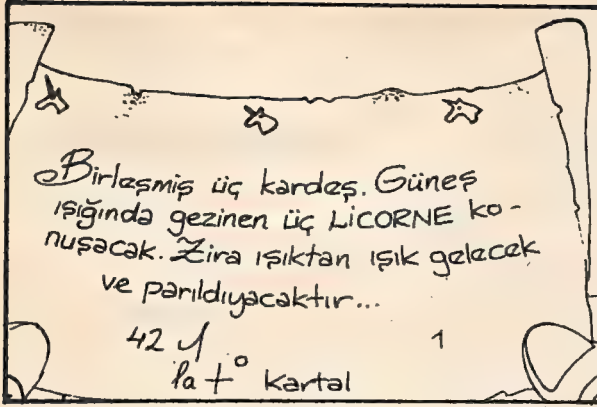 Birleşmiş üç kardeş. Güneş
ışığında gezinen üç LİCORNE ko-
nuşacak. Zira ışıktan ışık gelecek
ve parıldıyacaktır...
42 1
la t° kartal